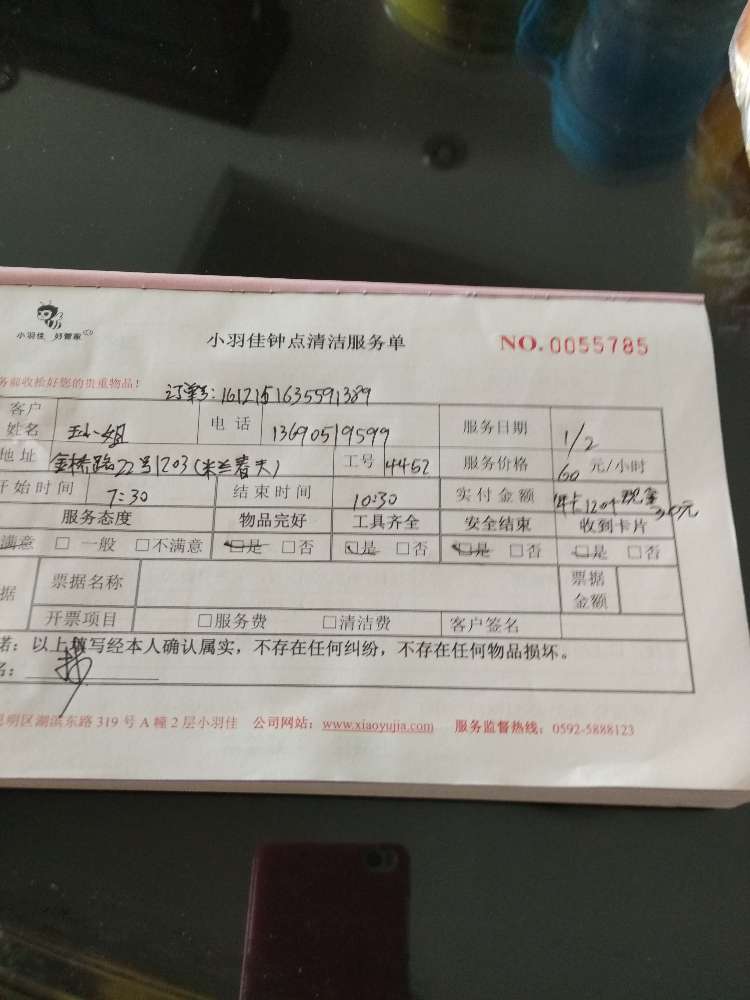 小羽佳 好管家
小羽佳钟点清洁服务单
NO.0055785
务前收检好您的贵重物品!
订单号:1612151635591389
客户姓名 王小姐 电话 13690519599 服务日期 1/2
地址 金桥路22号1203(米兰春天) 工号 4452 服务价格 60 元/小时
开始时间 7:30 结束时间 10:30 实付金额 年卡120个 现金
服务态度 物品完好 工具齐全 安全结束 收到卡片
满意 □ 一般 □不满意 □是 □否 □是 □否 □是 □否 □是 □否
据 票据名称 票据金额
开票项目 □服务费 □清洁费 客户签名
诺:以上填写经本人确认属实,不存在任何纠纷,不存在任何物品损坏。
名:
明区湖滨东路 319 号 A 幢 2 层小羽佳 公司网站:www.xiaoyujia.com 服务监督热线:0592-5888123